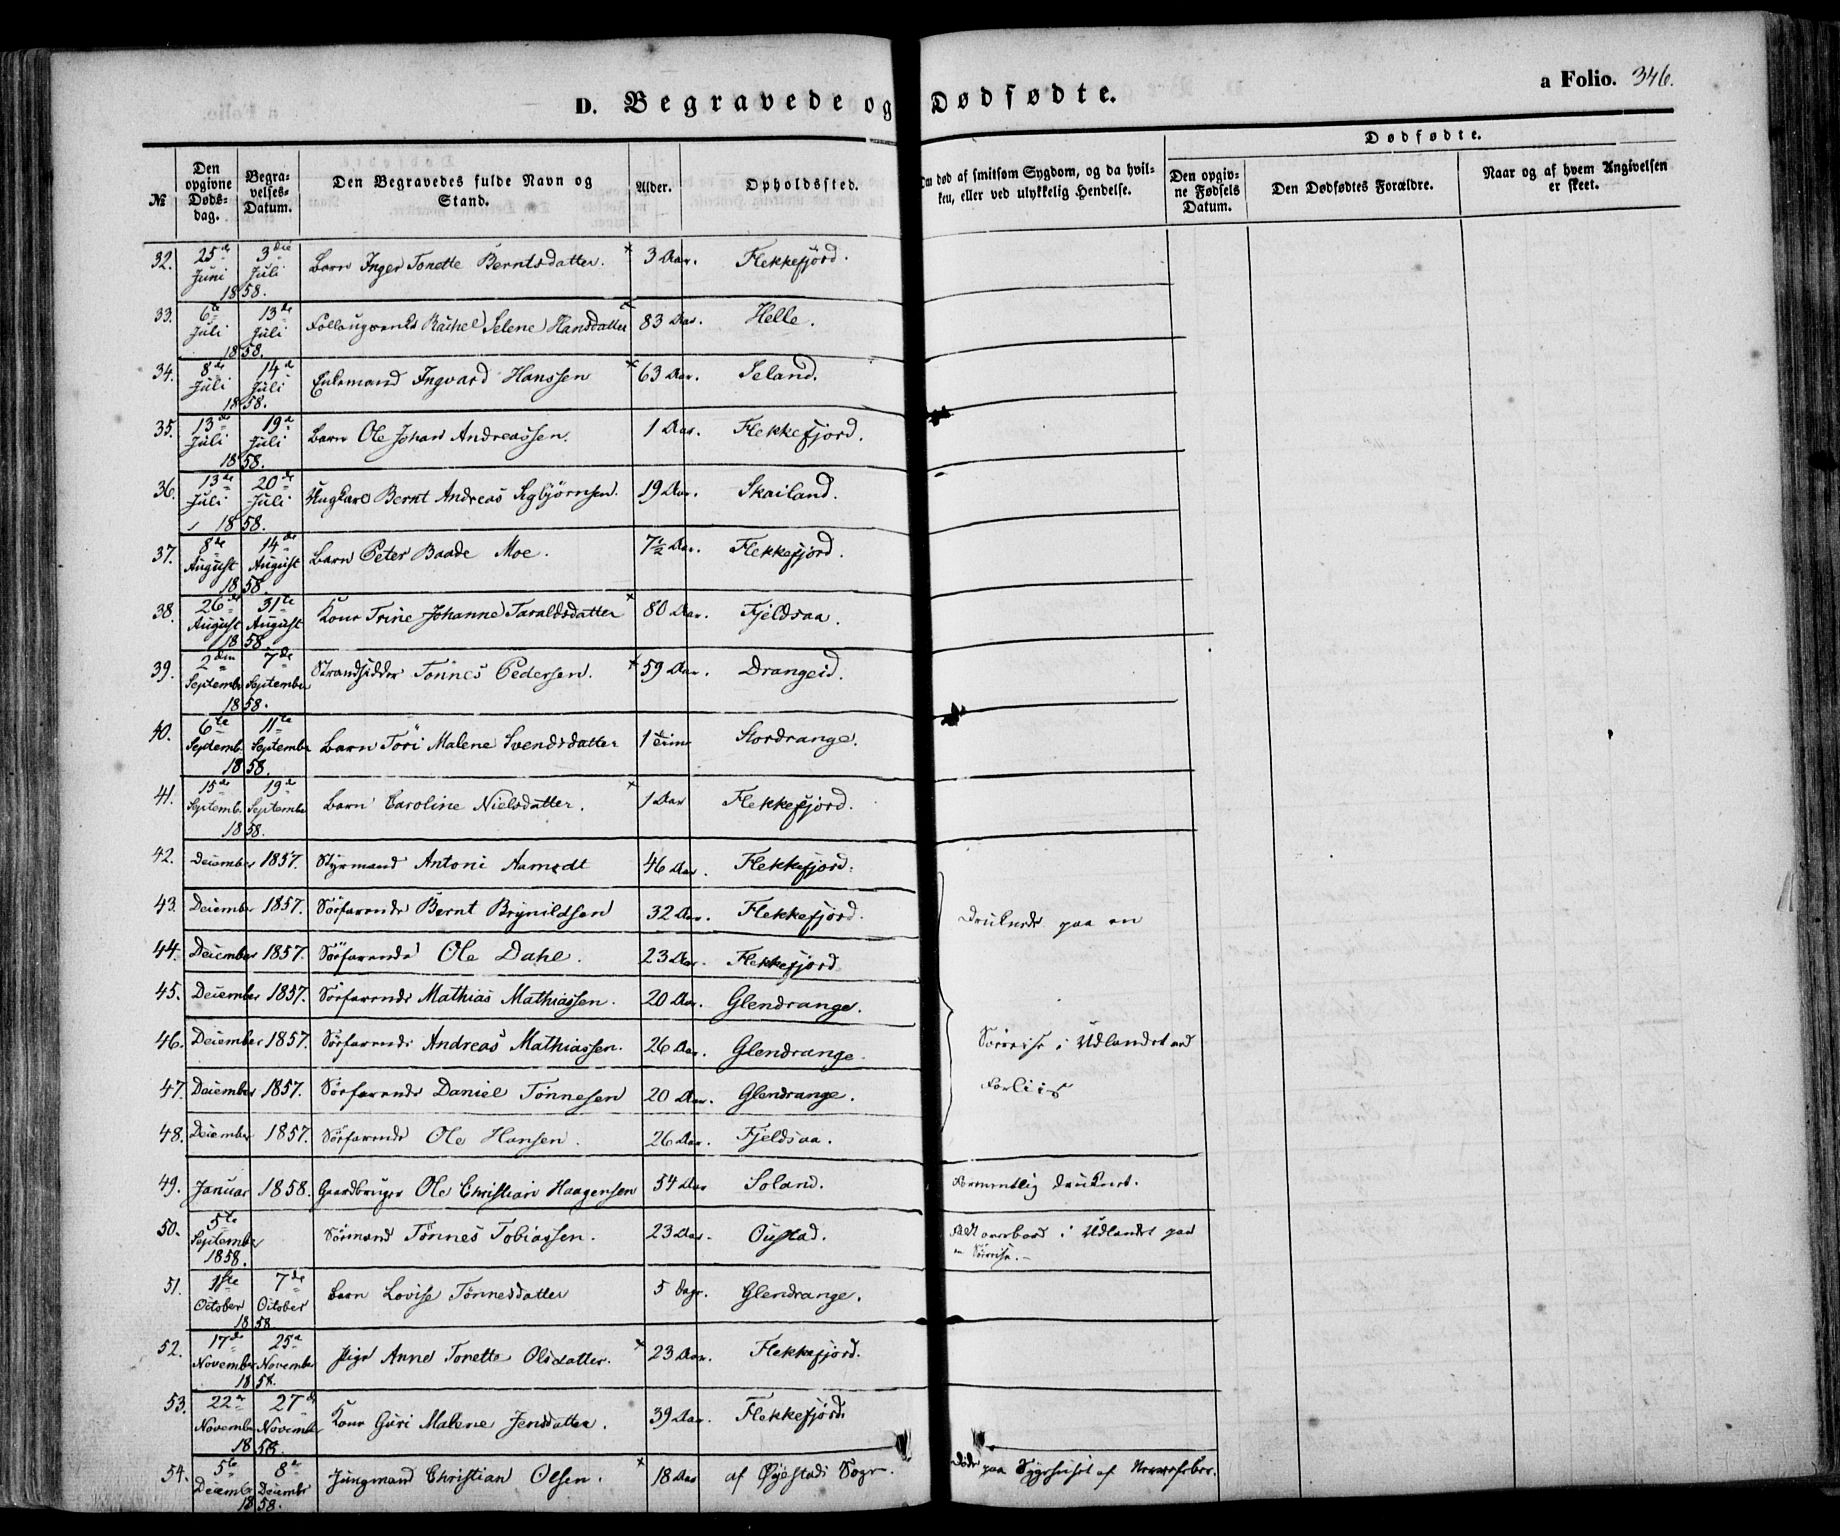 D. Begravede og Dødfødte.
a Folio. 346.
№
Den opgivne Døds-dag.
Begra-velses-Datum.
Den Begravedes fulde Navn og Stand.
Alder.
Opholdssted.
Om død af smitsom Sygdom, og da hvil-ken, eller ved ulykkelig Hendelse.
Dødfødte.
Den opgiv-ne Fødsels Datum.
Den Dødfødtes Forældre.
Naar og af hvem Angivelsen er skeet.
32. 25de Juni 3die Juli 1858. Barn Inger Tonette Berntsdatter. 3 Aar. Flekkefjord.
33. 6te Juli 13de Juli 1858. Rachel Selene Hansdatter 83 Aar. Helle.
34. 8de Juli 14de Juli 1858. Enkemand Ingvard Hanssen 63 Aar. Seland.
35. 13de Juli 19de Juli 1858. Barn Ole Johan Andreassen. 1 Aar. Flekkefjord.
36. 13de Juli 20de Juli 1858. Ungkarl Bernt Andreas Sigbjørnsen. 19 Aar. Skailand.
37. 8de August 14de August 1858. Barn Peter Baade Moe. 7½ Aar. Flekkefjord.
38. 26de August 31te August 1858. Kone Trine Johanne Taraldsdatter 80 Aar. Fjeldsaa.
39. 2den September 7de September 1858. Strandsidder Tönnes Pedersen. 59 Aar. Drangeid.
40. 6te Septemb. 11te September 1858. Barn Töri Malene Svendsdatter 1 Time Stordrange.
41. 15de Septemb. 19de September 1858. Barn Caroline Nielsdatter. 1 Aar Flekkefjord.
42. December 1857. Styrmand Antoni Aamodt 46 Aar. Flekkefjord.
43. December 1857. Söefarende Bernt Brynildsen 32 Aar. Flekkefjord.
44. December 1857. Söefarende Ole Dahl. 23 Aar. Flekkefjord
45. December 1857. Söefarende Mathias Mathiassen. 20 Aar. Glendrange.
46. December 1857. Söefarende Andreas Mathiassen. 26 Aar. Glendrange.
47. December 1857. Söefarende Daniel Tönnesen 20 Aar. Glendrange.
48. December 1857. Söefarende Ole Hansen. 26 Aar. Fjeldsaa.
Druknede paa en
Söereise i Udlandet ved
Forliis
49. Januar 1858. Gaardbruger Ole Christian Haagensen 54 Aar Soland. Formentlig druknet.
50. 5te September 1858. Sömand Tönnes Tobiassen. 23 Aar. Oustad. Faldt overbord i Udlandet paa
en Söereise.-
51. 1ste October 7de October 1858 Barn Lovise Tönnesdatter 5 Dage. Glendrange.
52. 17de November 25de November 1858. Pige Anne Tonette Olsdatter. 23 Aar. Flekkefjord.
53. 22de November 27de November 1858. Kone Guri Malene Jensdatter. 39 Aar. Flekkefjord.
54. 5te Decemb. 8de December 1858. Jungmand Christian Olsen. 18 Aar af Öyestads Sogn. Döde paa Sygehuset af Nervefeber.